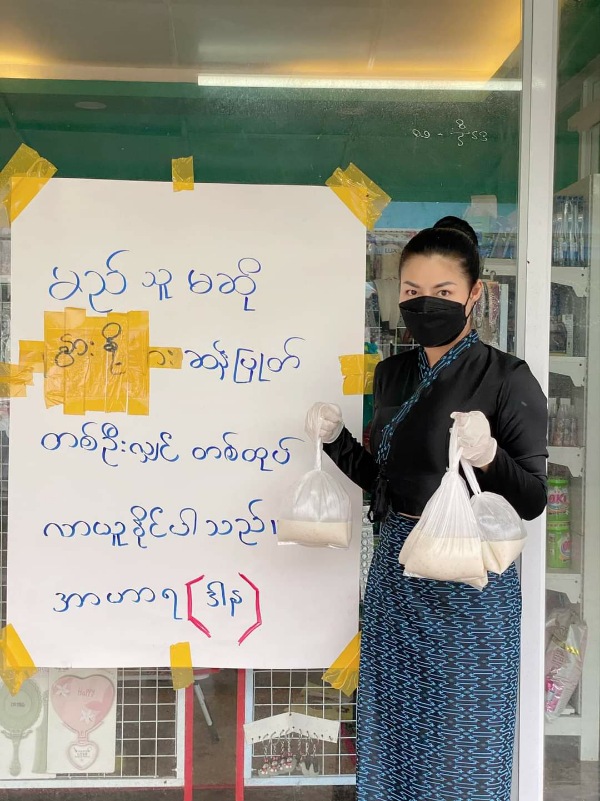 မည်သူမဆို
နွားနို့ ဆန်ပြုတ်
တစ်ဦးလျှင် တစ်ထုပ်
လာယူနိုင်ပါသည်။
အာဟာရ (ဒါန)